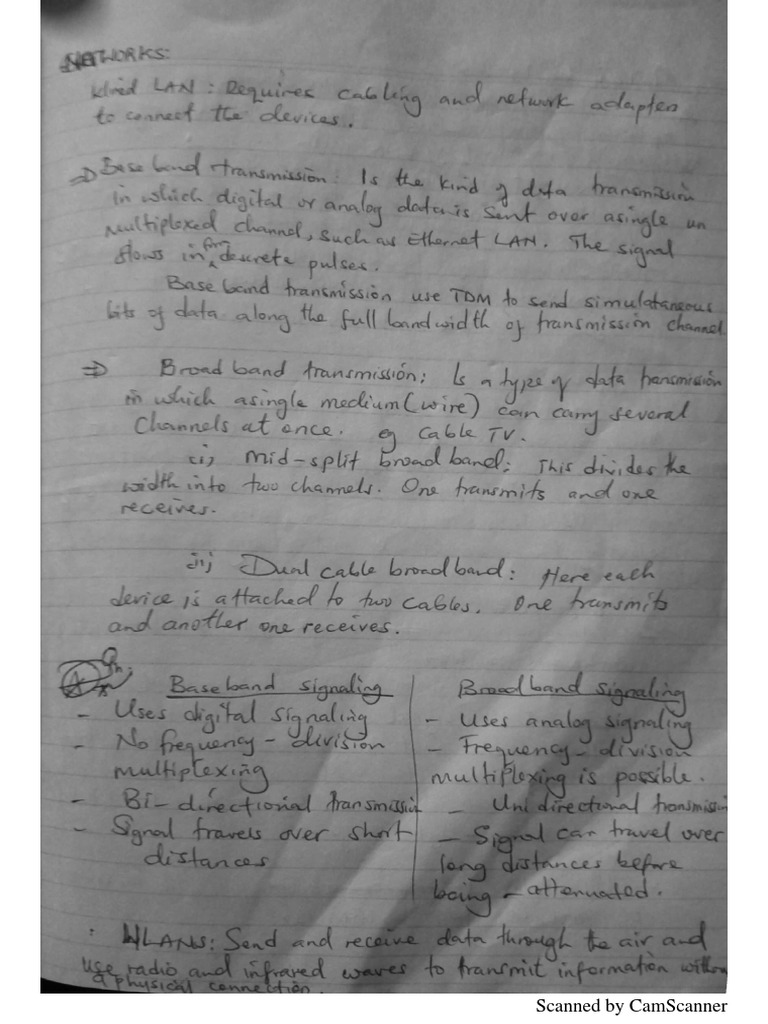 NETWORKS:
Wired LAN : Requires cabling and network adapters
to connect the devices.
⇒ Base band transmission: Is the kind of data transmission
in which digital or analog data is sent over asingle un
multiplexed channel, such as Ethernet LAN. The signal
flows in form descrete pulses.
Base band transmission use TDM to send simulataneous
bits of data along the full bandwidth of transmission channel.
⇒ Broad band transmission; Is a type of data transmission
in which asingle medium (wire) can carry several
Channels at once. eg Cable TV.
(i) Mid-split broad band: This divides the
width into two channels. One transmits and one
receives.
ii) Dual cable broad band: Here each
device is attached to two cables. One transmits
and another one receives.
Qn:
Base band signaling
- Uses digital signaling
- No frequency - division
multiplexing
- Bi-directional transmission
- Signal travels over short
distances
Broad band signaling
- Uses analog signaling
- Frequency - division
multiplexing is possible.
- Uni directional transmission
- Signal can travel over
long distances before
being - attenuated.
WLANS: Send and receive data through the air and
use radio and infrared waves to transmit information without
a physical connection.
Scanned by CamScanner